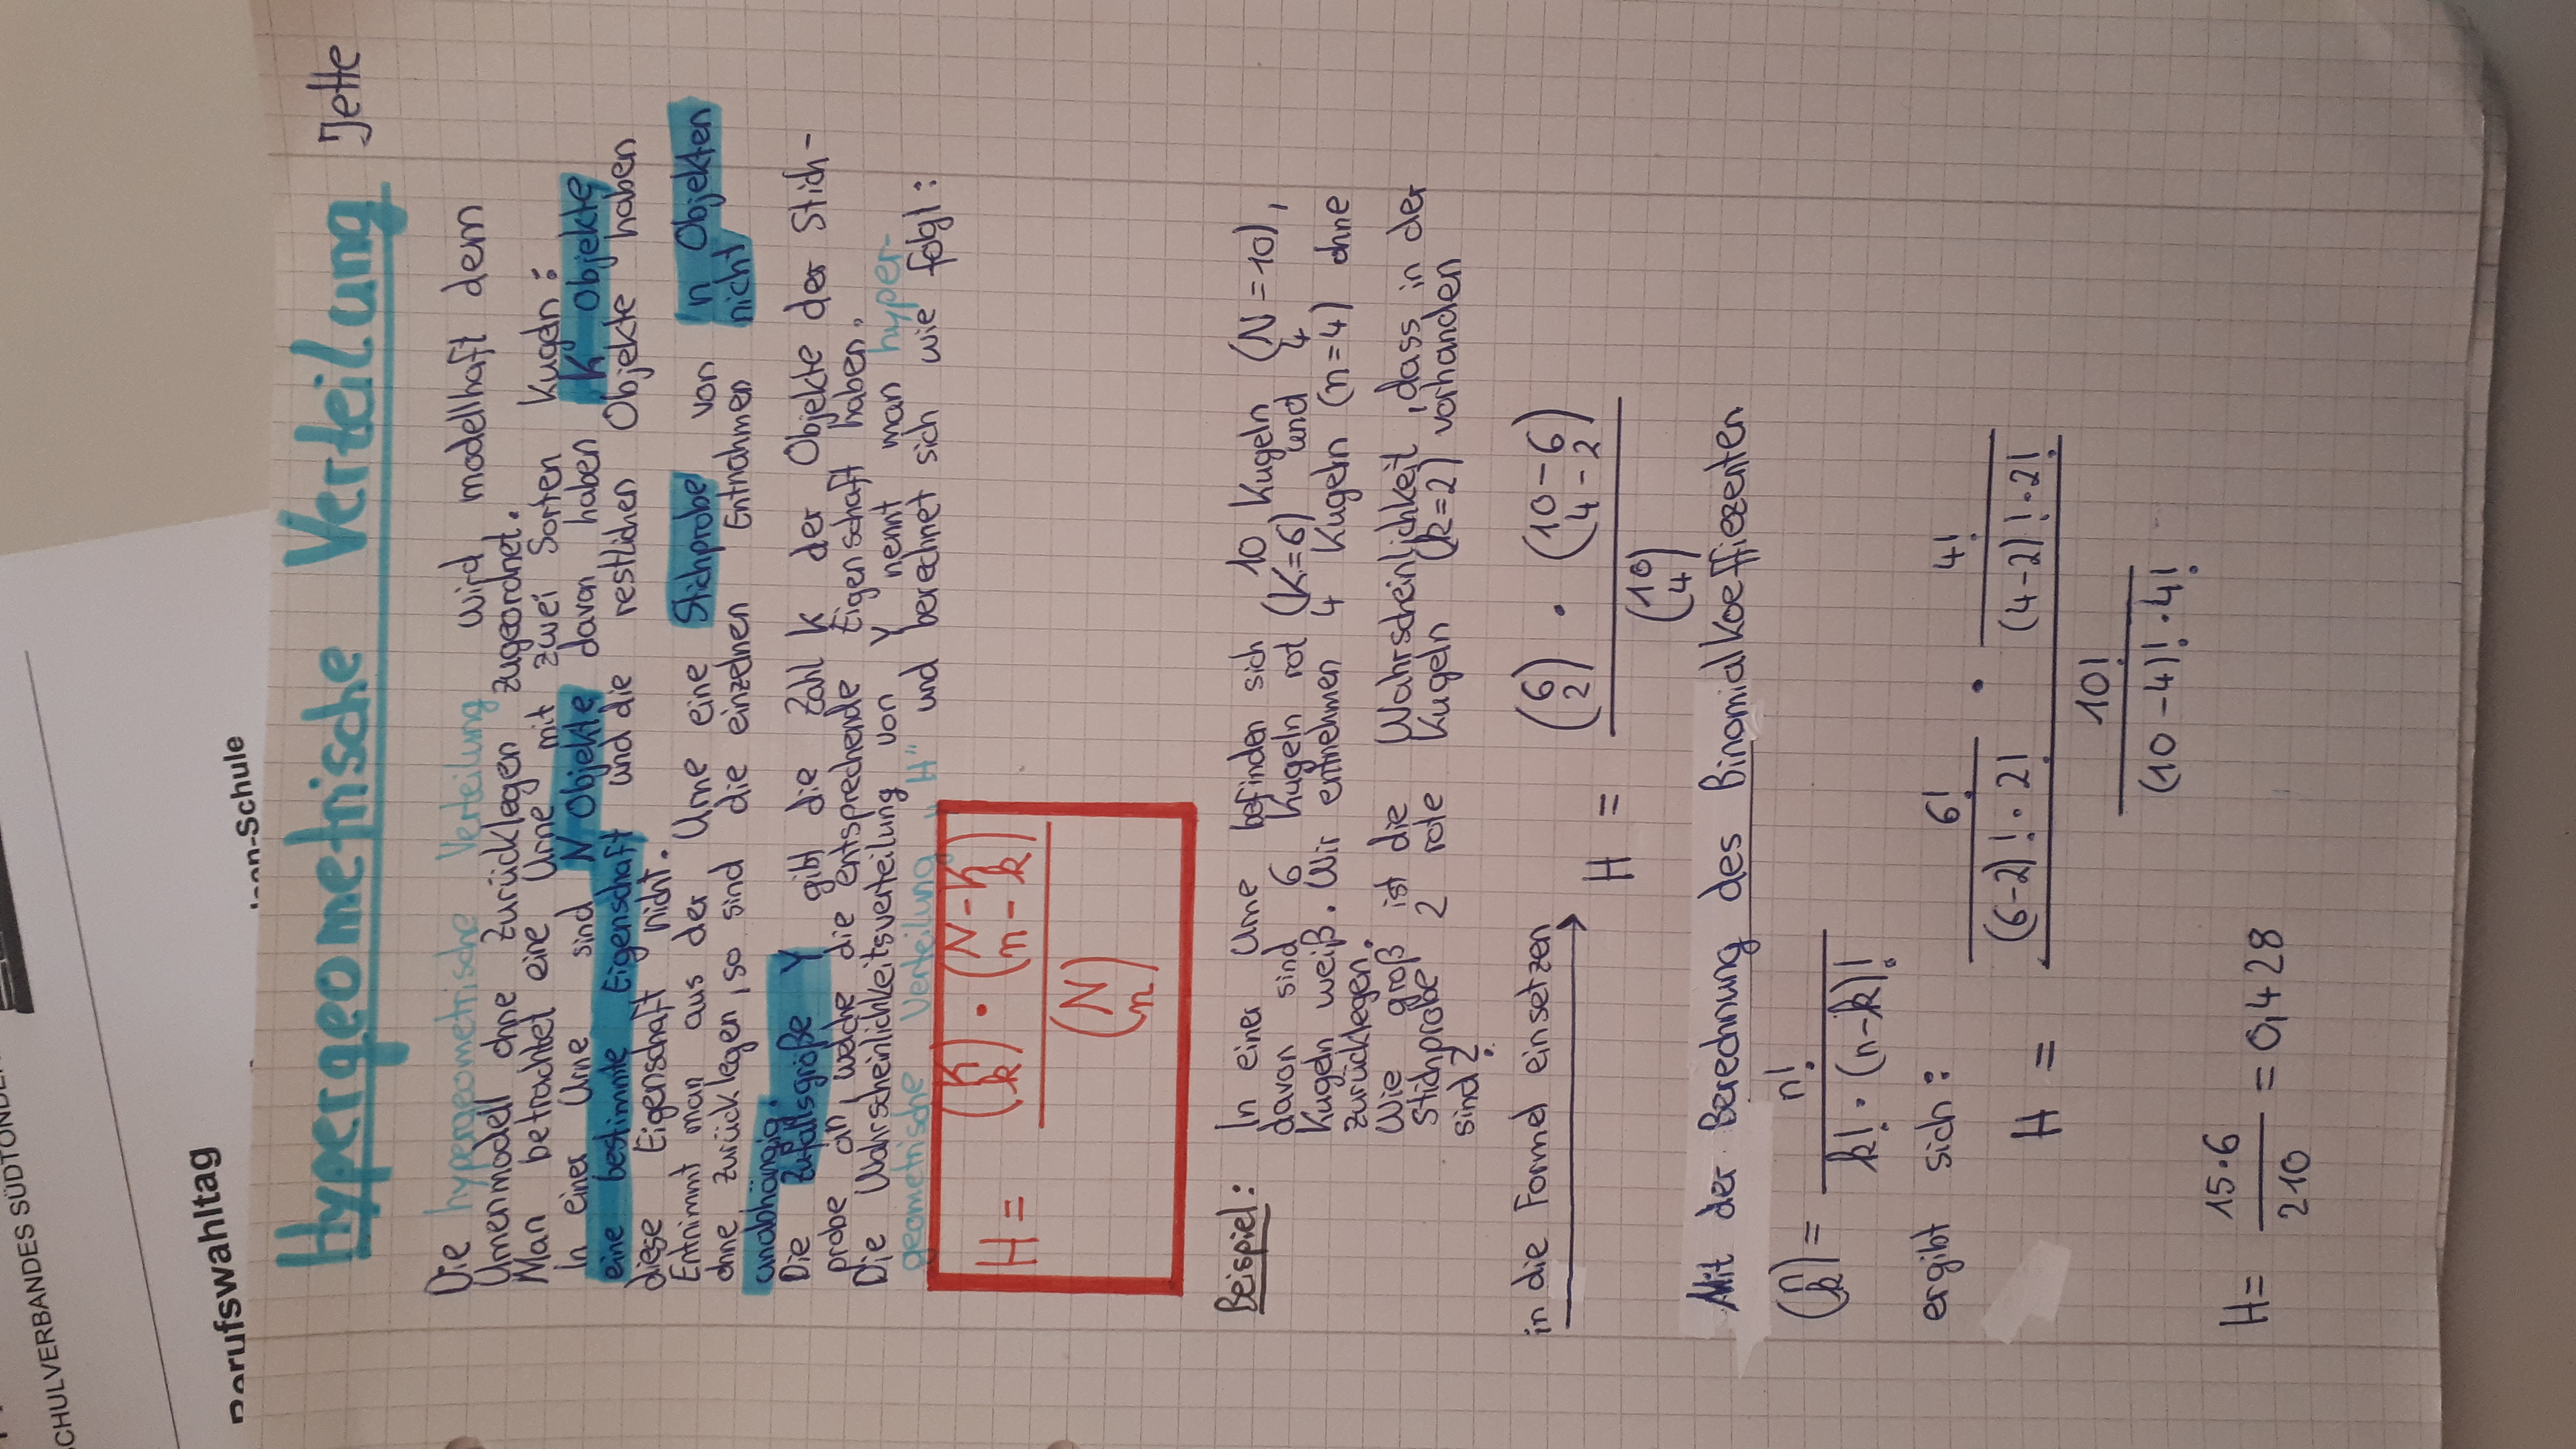 SCHULVERBANDES SÜDTONDE
Berufswahltag
Hypergeometrische Verteilung Jette
Die hypergeometrische Verteilung wird modellhaft dem
Urnenmodell ohne Zurücklegen zugeordnet.
Man betrachtet eine Urne mit zwei Sorten Kugeln:
In einer Urne sind N Objekte davon haben K Objekte
eine bestimmte Eigenschaft und die restlichen Objekte haben
diese Eigenschaft nicht.
Entnimmt man aus der Urne eine Stichprobe von n Objekten
ohne zurücklegen, so sind die einzelnen Entnahmen nicht
unabhängig.
Die Zufallsgröße Y gibt die Zahl k der Objekte der Stich-
probe an, welche die entsprechende Eigenschaft haben.
Die Wahrscheinlichkeitsverteilung von Y nennt man hyper-
geometrische Verteilung „H" und berechnet sich wie folgt:
H = (K k) · (N-K n-k)
(N n)
Beispiel: In einer Urne befinden sich 10 Kugeln (N=10),
davon sind 6 Kugeln rot (K=6) und 4
Kugeln weiß. Wir entnehmen 4 Kugeln (n=4) ohne
zurücklegen.
Wie groß ist die Wahrscheinlichkeit, dass in der
Stichprobe 2 rote Kugeln (k=2) vorhanden
sind?
in die Formel einsetzen
H = (6 2) · (10-6 4-2)
(10 4)
Mit der Berechnung des Binomialkoeffiezenten
(n k) = n! / k! · (n-k)!
ergibt sich:
H = 6! / (6-2)! · 2! · 4! / (4-2)! · 2!
10! / (10-4)! · 4!
H = 15·6 / 210 = 0,428